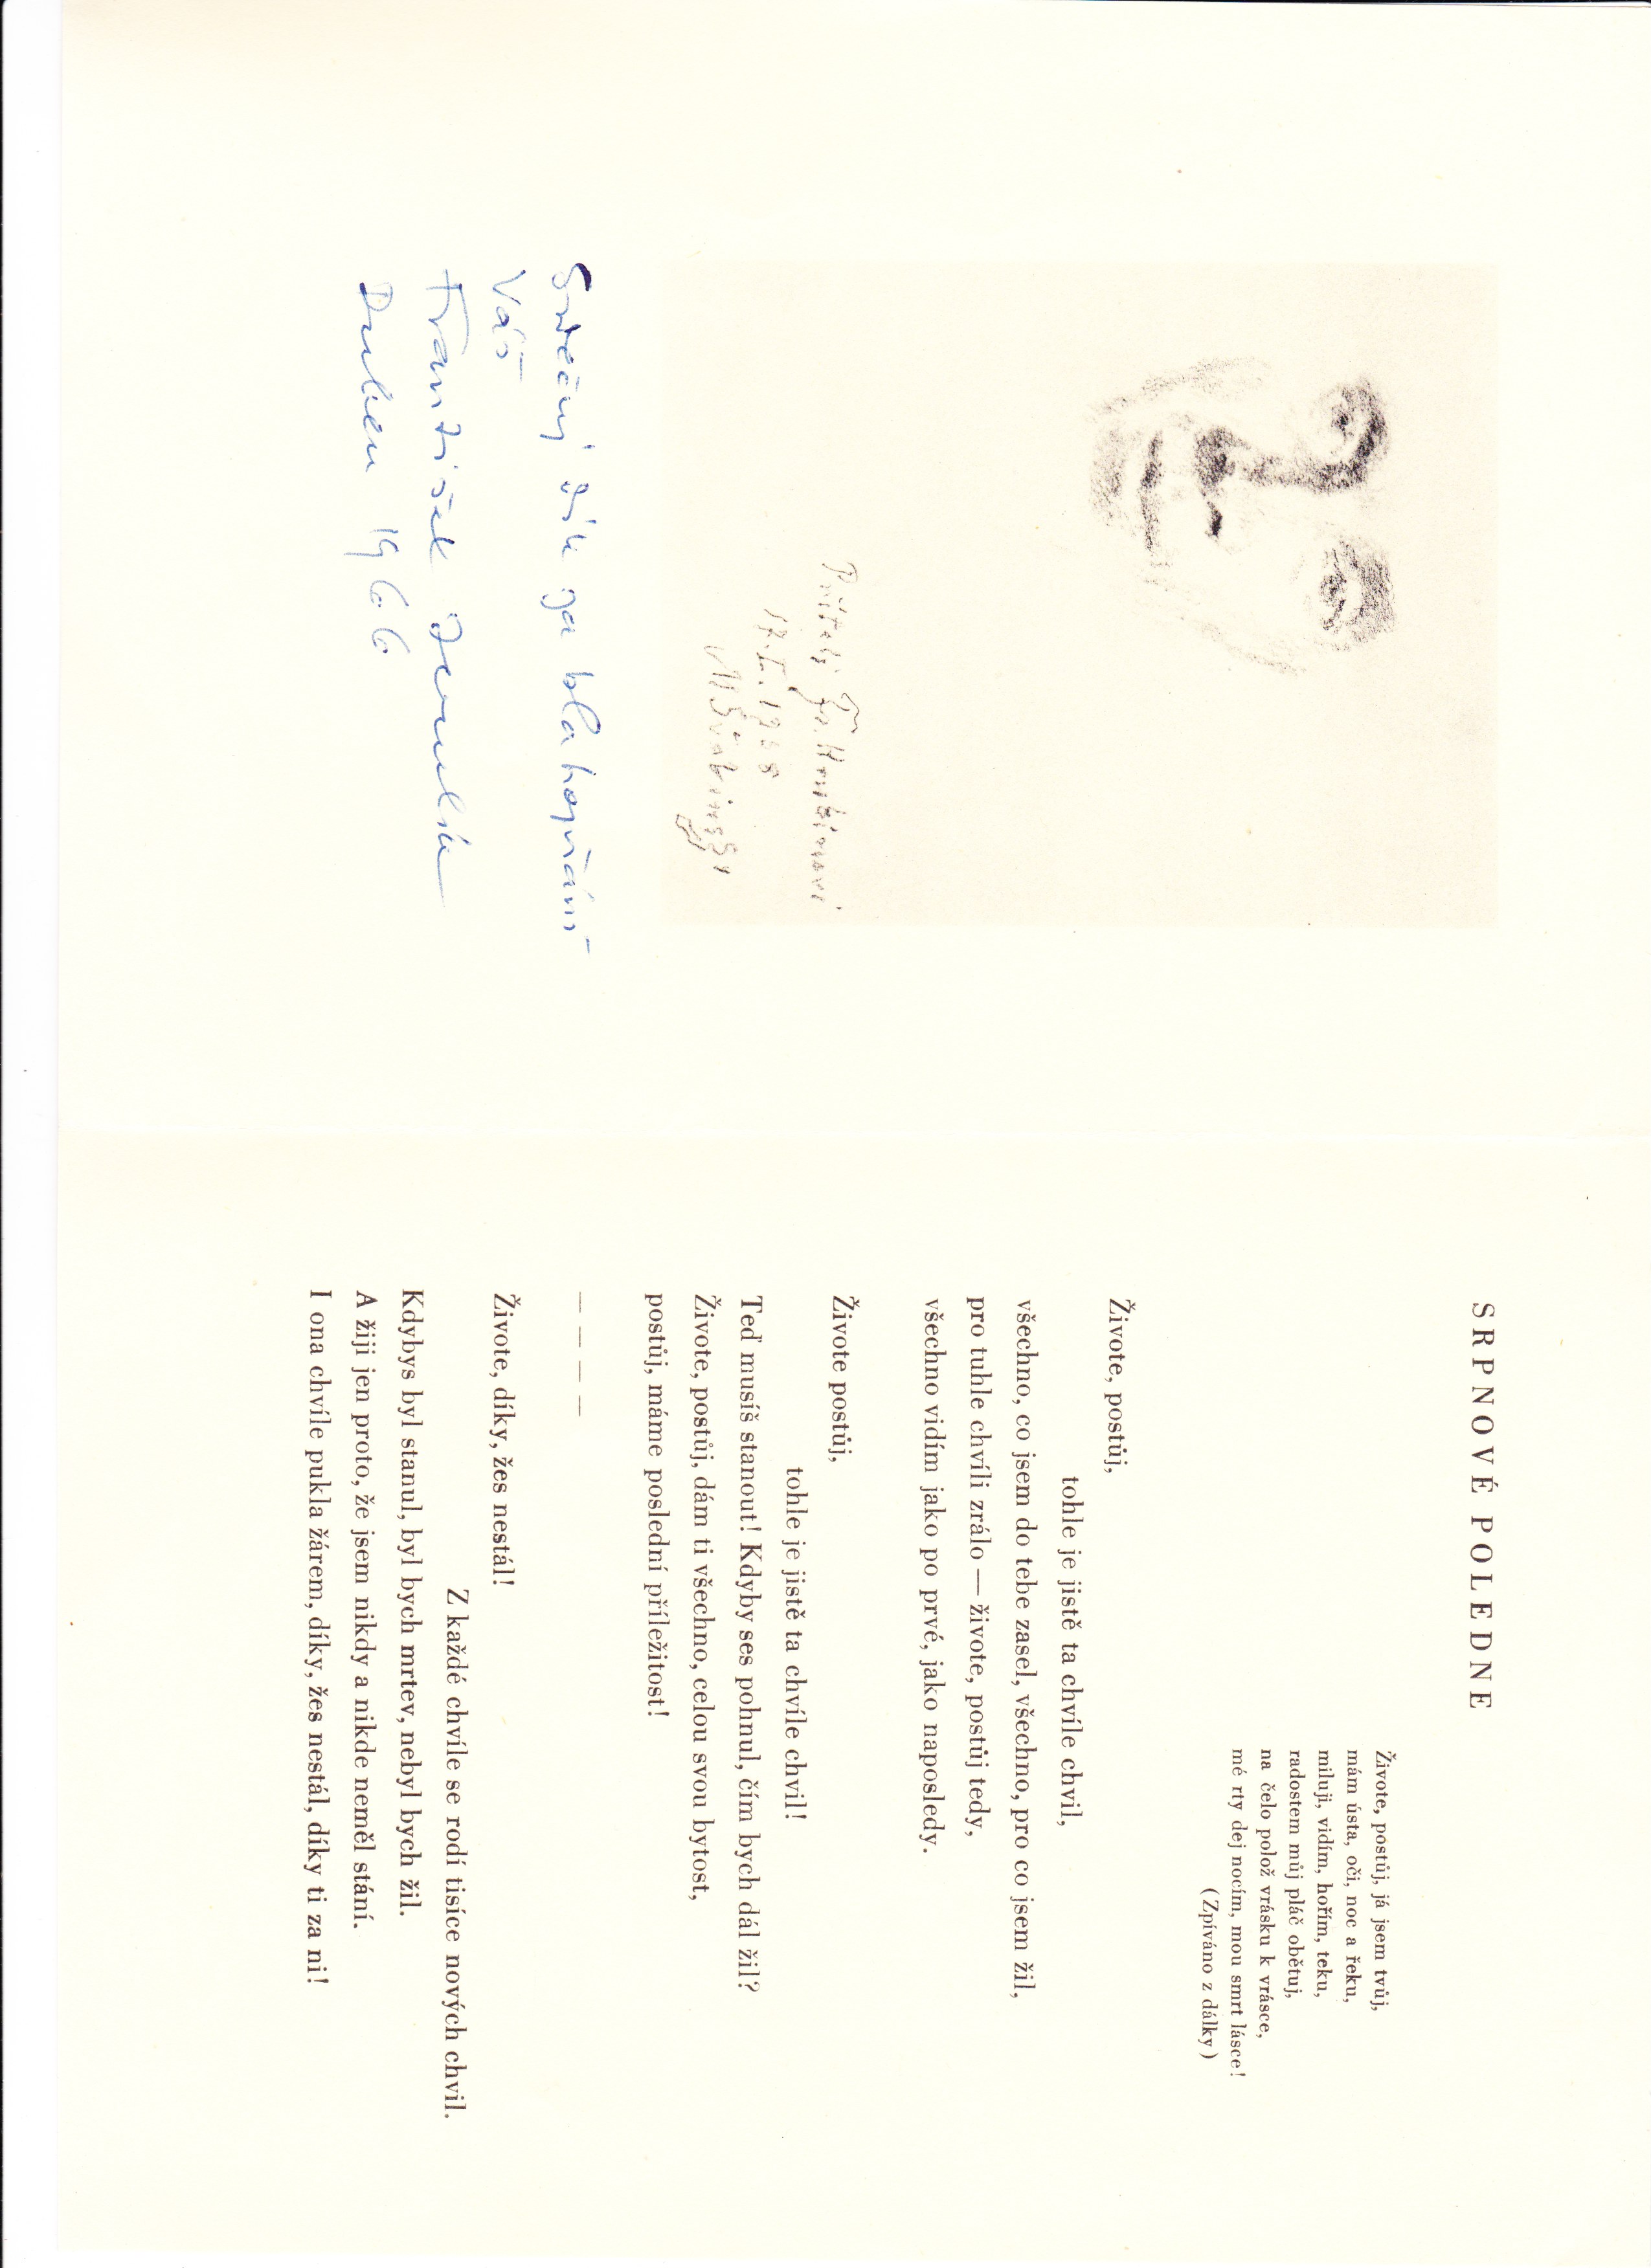 Příteli Fr. Hrubínovi
17.I.19
M Švabinský
Srdečný dík za blahopřání
Váš
František
Duben 1966
SRPNOVÉ POLEDNE
Živote, postůj, já jsem tvůj,
mám ústa, oči, noc a řeku,
miluji, vidím, hořím, teku,
radostem můj pláč obětuj,
na čelo polož vrásku k vrásce,
mé rty dej nocím, mou smrt lásce!
(Zpíváno z dálky)
Živote, postůj,
tohle je jistě ta chvíle chvil,
všechno, co jsem do tebe zasel, všechno, pro co jsem žil,
pro tuhle chvíli zrálo — živote, postůj tedy,
všechno vidím jako po prvé, jako naposledy.
Živote postůj,
tohle je jistě ta chvíle chvil!
Teď musíš stanout! Kdyby ses pohnul, čím bych dál žil?
Živote, postůj, dám ti všechno, celou svou bytost,
postůj, máme poslední příležitost!
— — — —
Živote, díky, žes nestál!
Z každé chvíle se rodí tisíce nových chvil.
Kdybys byl stanul, byl bych mrtev, nebyl bych žil.
A žiji jen proto, že jsem nikdy a nikde neměl stání.
I ona chvíle pukla žárem, díky, žes nestál, díky ti za ni!